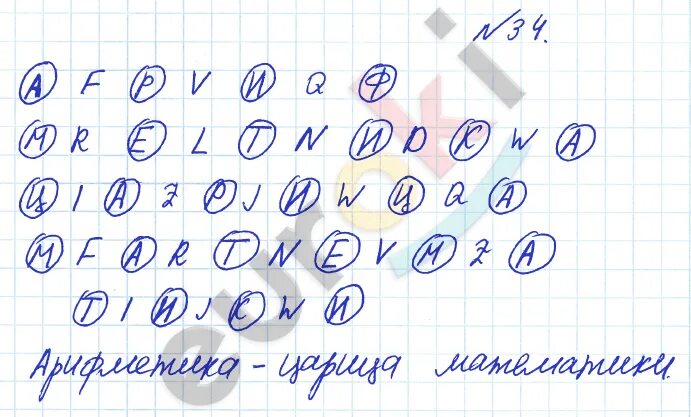 №34.
А F Р V И Q Ф
М R Е L Т N И D К W А
Ц I А Z Р J И W Ц Q А
М F А R Т N Е V М Z А
Т I И J К W И
Арифметика - царица математики.
euroki